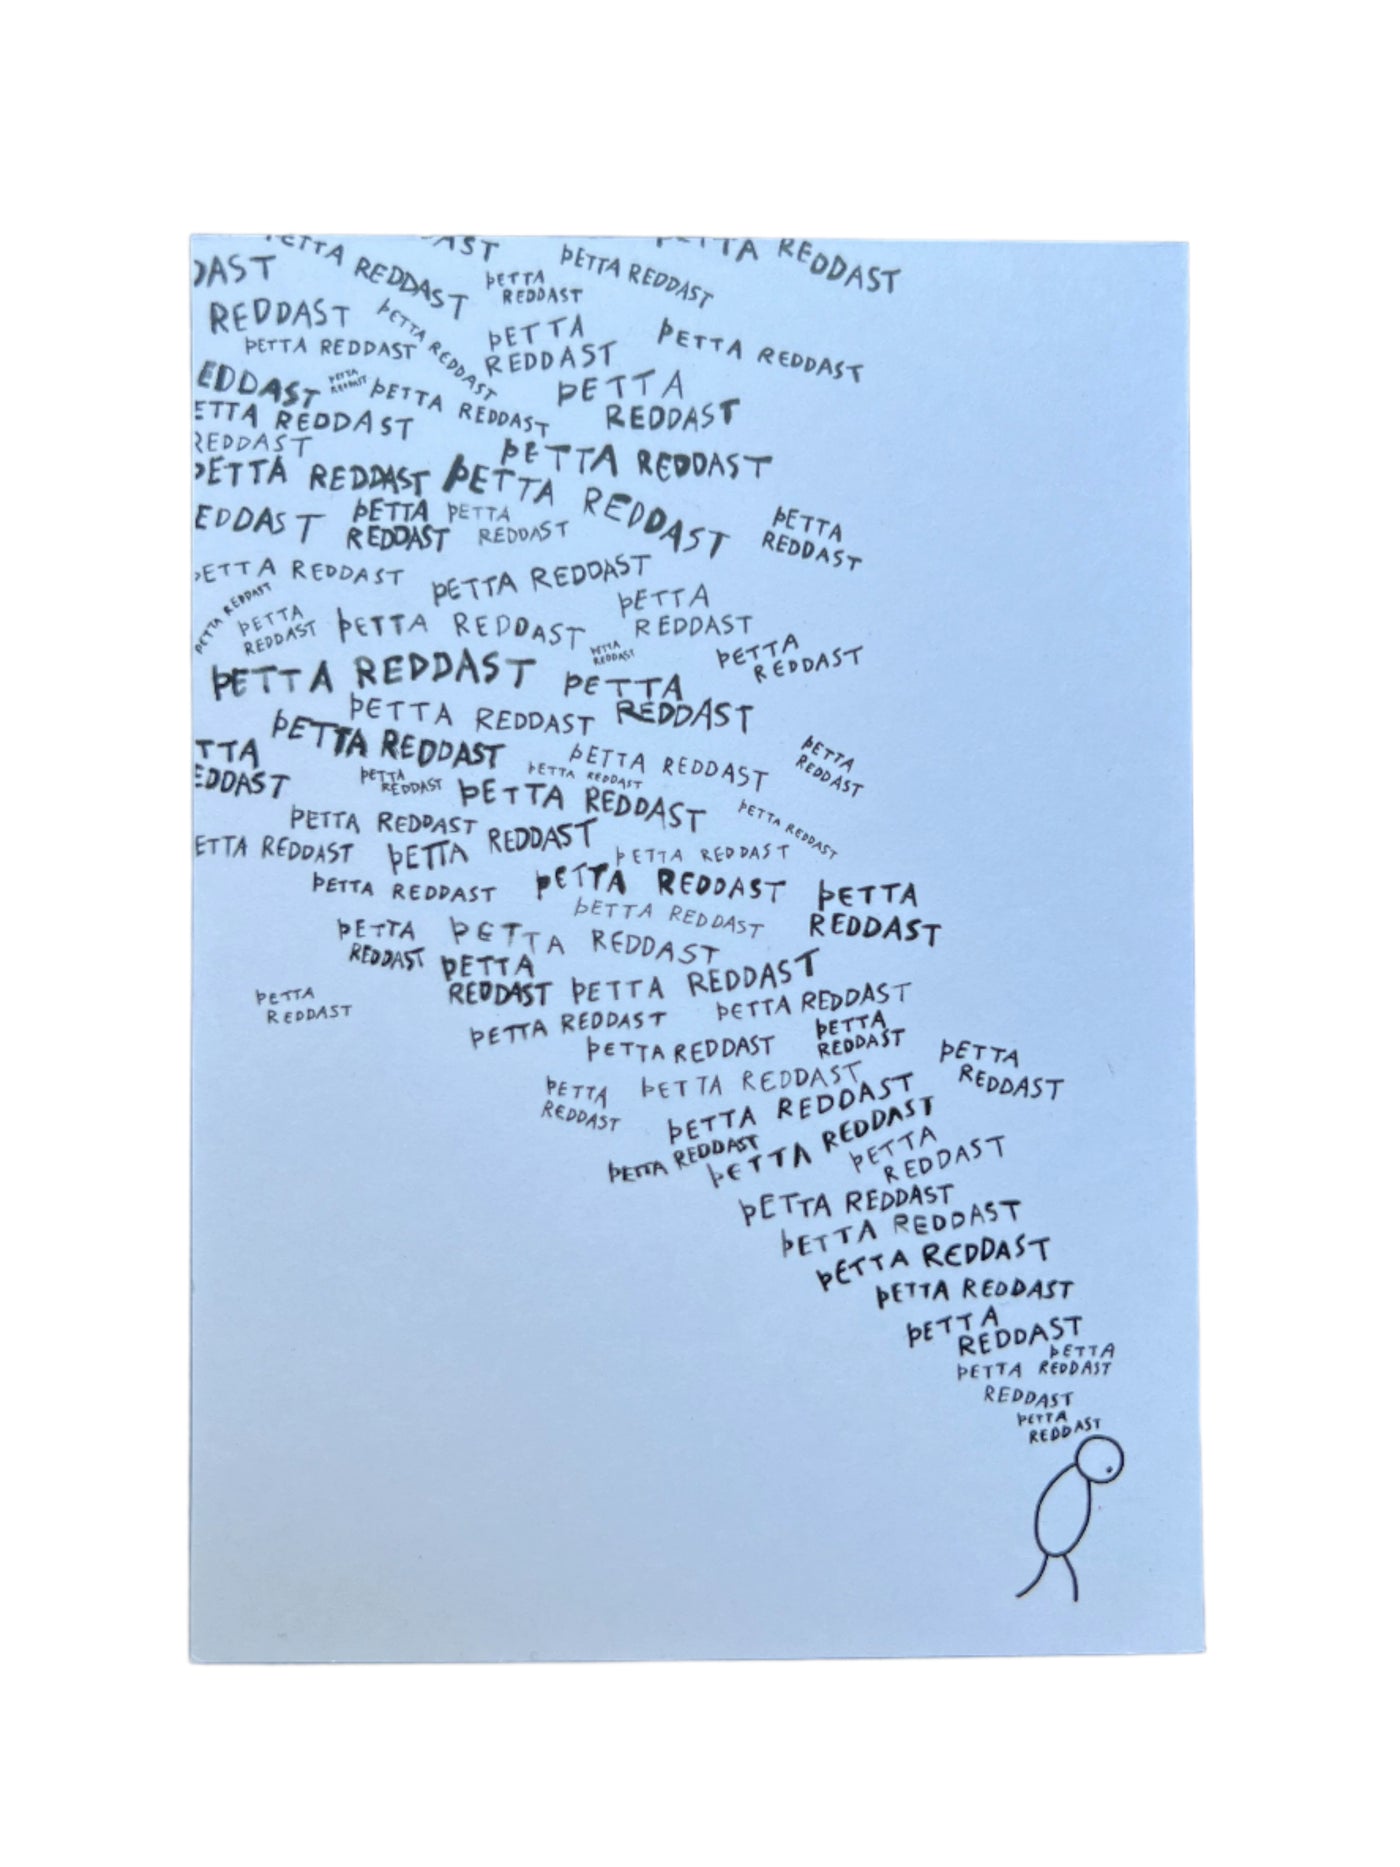 ETTA REDDAST
AST
TTA REDDAST
DAST
ÞETTA
REDDAST
ÞETTA REDDAST
REDDAST
ÞETTA REDDAST
ÞETTA
REDDAST
ÞETTA REDDAST
ÞETTA REDDAST
EDDAST
ÞETTA
REDDAST
ÞETTA REDDAST
ÞETTA
REDDAST
ETTA REDDAST
REDDAST
ÞETTA REDDAST
ÞETTA REDDAST
ÞETTA REDDAST
EDDAST
ÞETTA
REDDAST
ÞETTA
REDDAST
ÞETTA
REDDAST
ÞETTA REDDAST
ÞETTA REDDAST
ÞETTA REDDAST
ÞETTA
REDDAST
ÞETTA REDDAST
ÞETTA
REDDAST
ÞETTA
REDDAST
ÞETTA
REDDAST
ÞETTA REDDAST
ÞETTA
REDDAST
ÞETTA REDDAST
ÞETTA REDDAST
TTA
EDDAST
ÞETTA REDDAST
ÞETTA
REDDAST
ÞETTA
REDDAST
ÞETTA REDDAST
ÞETTA REDDAST
ÞETTA REDDAST
ÞETTA REDDAST
ETTA REDDAST
ÞETTA REDDAST
ÞETTA REDDAST
ÞETTA REDDAST
ÞETTA REDDAST
ÞETTA
REDDAST
ÞETTA REDDAST
ÞETTA
REDDAST
ÞETTA REDDAST
ÞETTA
REDDAST
ÞETTA REDDAST
ÞETTA
REDDAST
ÞETTA REDDAST
ÞETTA REDDAST
ÞETTA REDDAST
ÞETTA
REDDAST
ÞETTA
REDDAST
ÞETTA
REDDAST
ÞETTA REDDAST
ÞETTA REDDAST
ÞETTA REDDAST
ÞETTA REDDAST
ÞETTA
REDDAST
ÞETTA REDDAST
ÞETTA REDDAST
ÞETTA REDDAST
ÞETTA REDDAST
ÞETTA
REDDAST
ÞETTA
ÞETTA REDDAST
REDDAST
ÞETTA
REDDAST